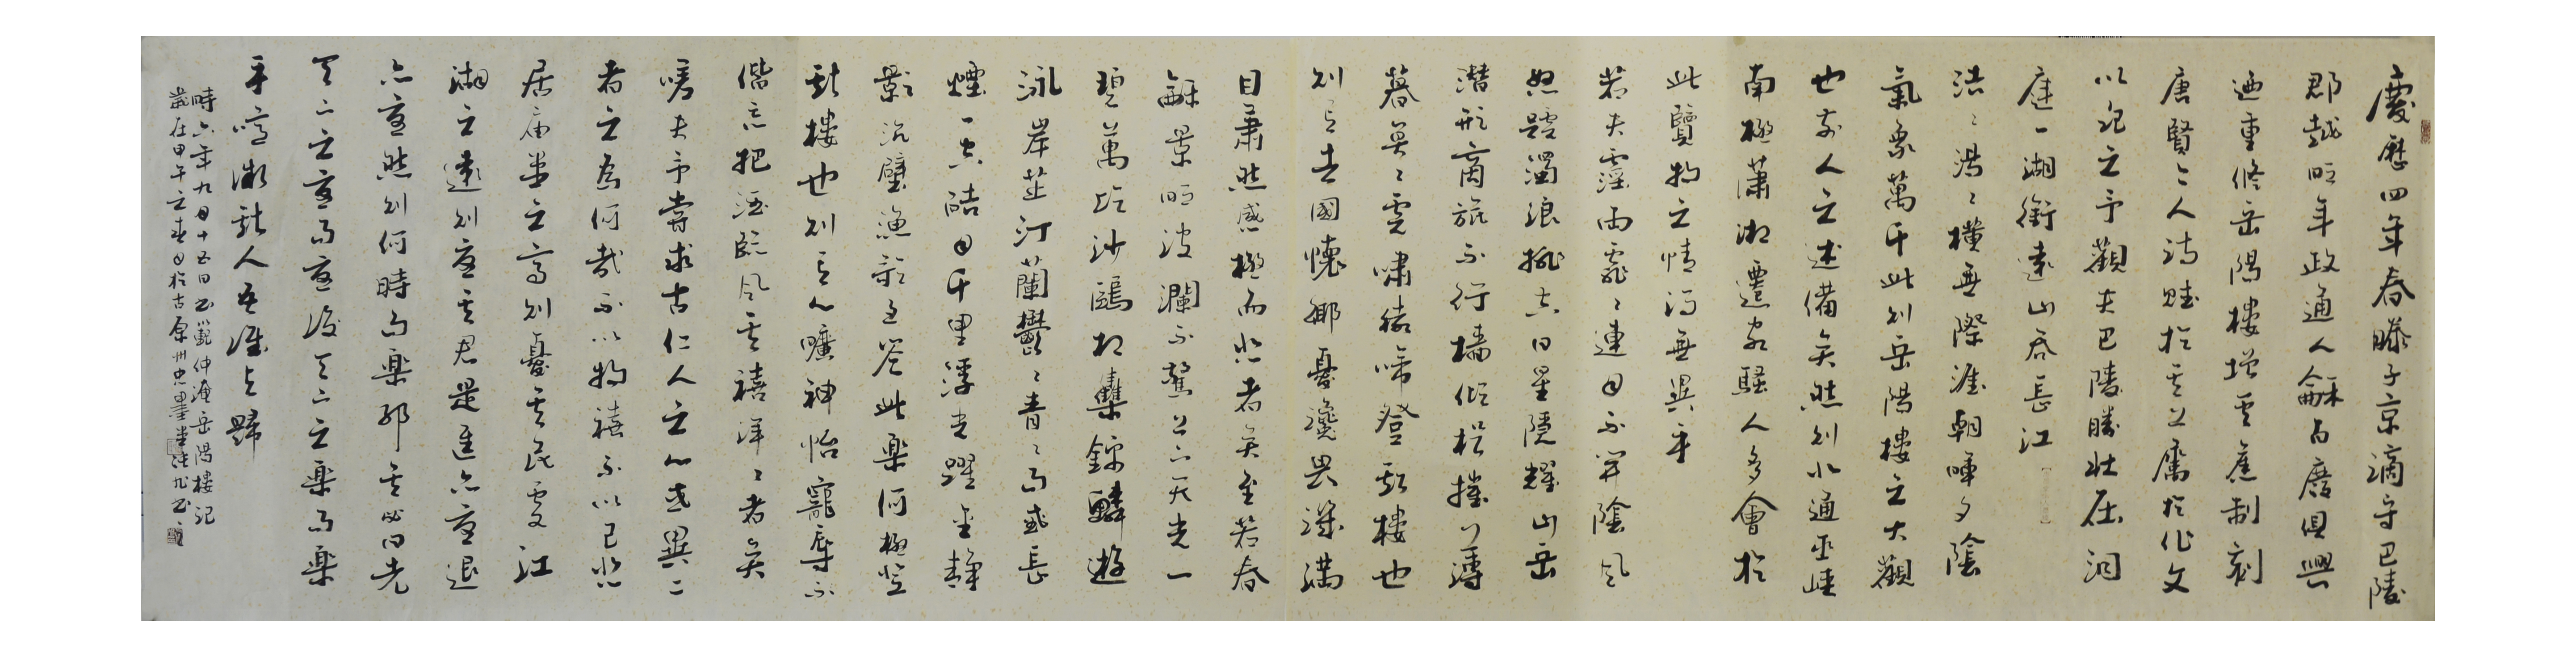 慶歷四年春滕子京謫守巴陵
郡越明年政通人龢百廢俱興
迺重修岳陽樓增其舊制刻
唐賢今人詩賦於其上屬於作文
以記之予觀夫巴陵勝壯在洞
庭一湖銜遠山吞長江
浩〻湯〻橫無際涯朝暉夕陰
氣象萬千此則岳陽樓之大觀
也前人之述備矣然則北通巫峽
南極瀟湘遷客騷人多會於
此覽物之情得無異乎
若夫霪雨霏〻連日不開陰風
怒號濁浪排空日星隱耀山岳
潛形商旅不行檣傾楫摧薄
暮冥〻虎嘯猿啼登斯樓也
則有去國懷鄉憂讒畏譏滿
目蕭然感極而悲者矣至若春
龢景明波瀾不驚上下天光一
碧萬頃沙鷗翔集錦鱗遊
泳岸芷汀蘭鬱〻青〻而或長
煙一空皓月千里浮光躍金靜
影沉璧漁歌互答此樂何極登
斯樓也則有心曠神怡寵辱不
偕忘把酒臨風其禧洋〻者矣
嗟夫予嘗求古仁人之心或異二
者之為何哉不以物禧不以己悲
居廟堂之高則憂其民處江
湖之遠則憂其君是進亦憂退
亦憂然則何時而樂耶其必曰先
天下之憂而憂後天下之樂而樂
乎噫微斯人吾誰與歸
時六年九月十五日 范仲淹岳陽樓記
歲在甲午之春月於古原州忠